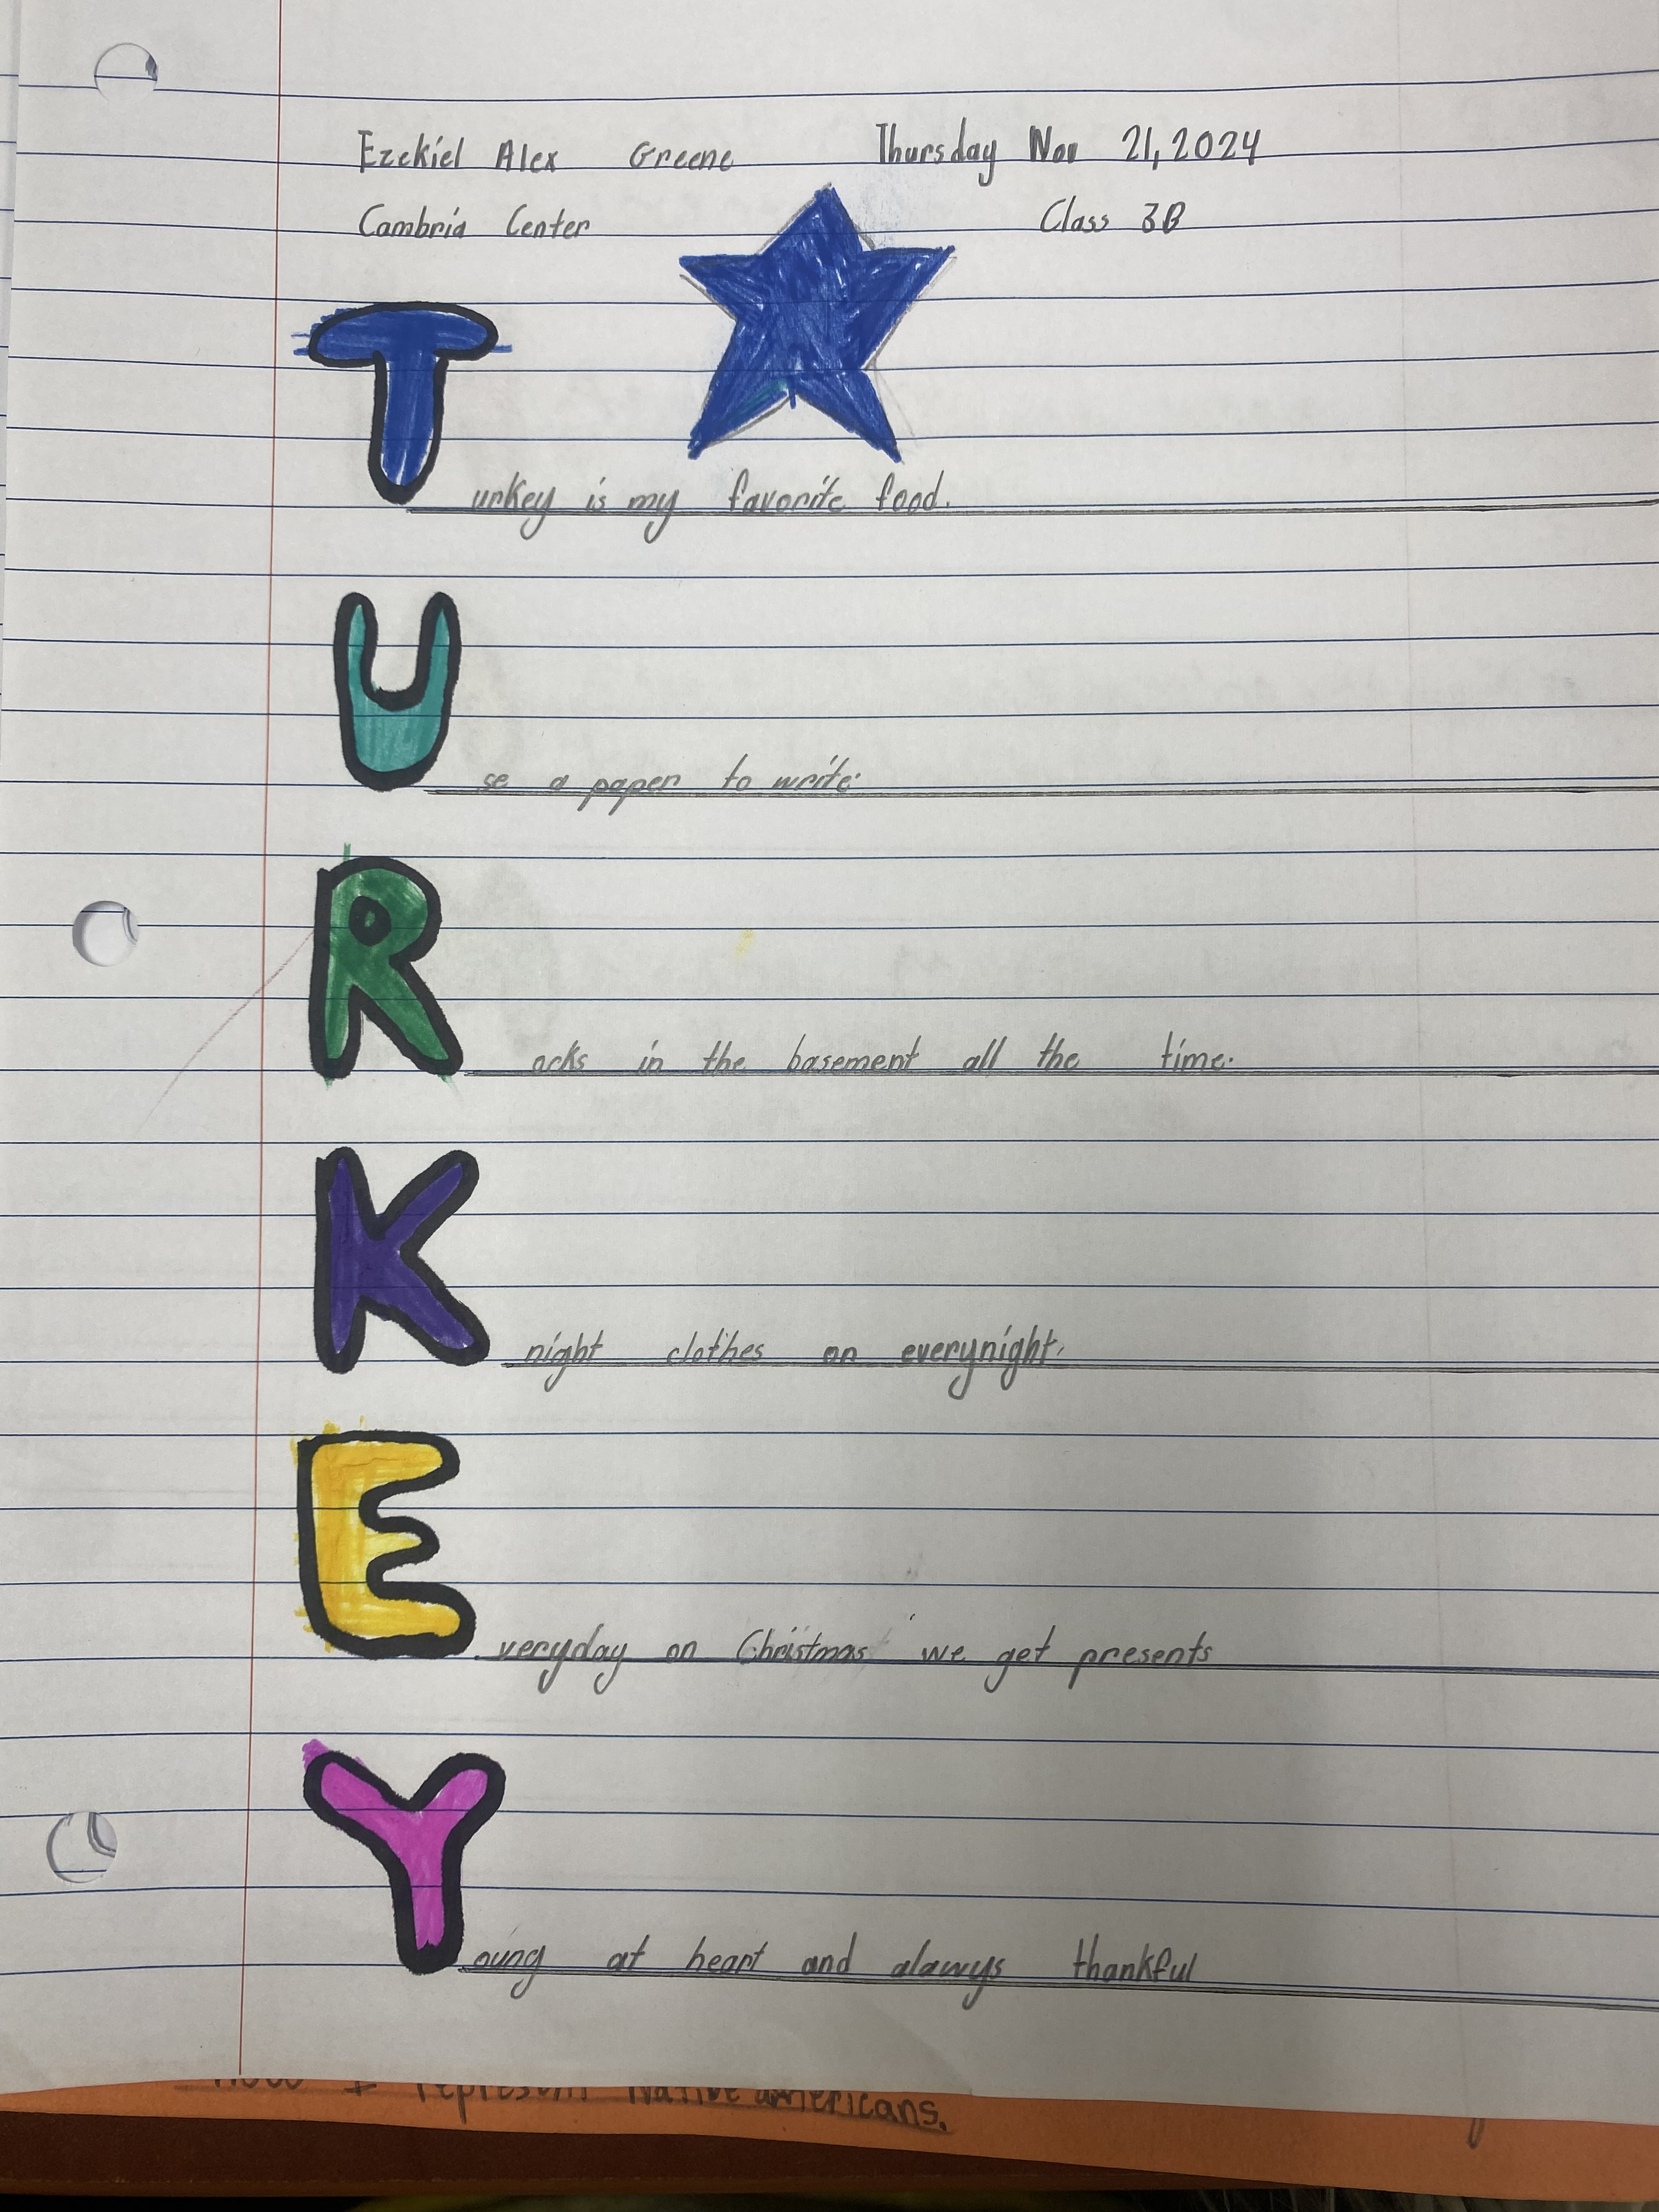 Ezekiel Alex Greene Thursday Nov 21, 2024
Cambria Center Class 3B
Turkey is my favorite food.
Use a paper to write.
Rocks in the basement all the time.
Knight clothes on everynight.
Everyday on Christmas we get presents
Young at heart and alawys thankful
represent Native americans.